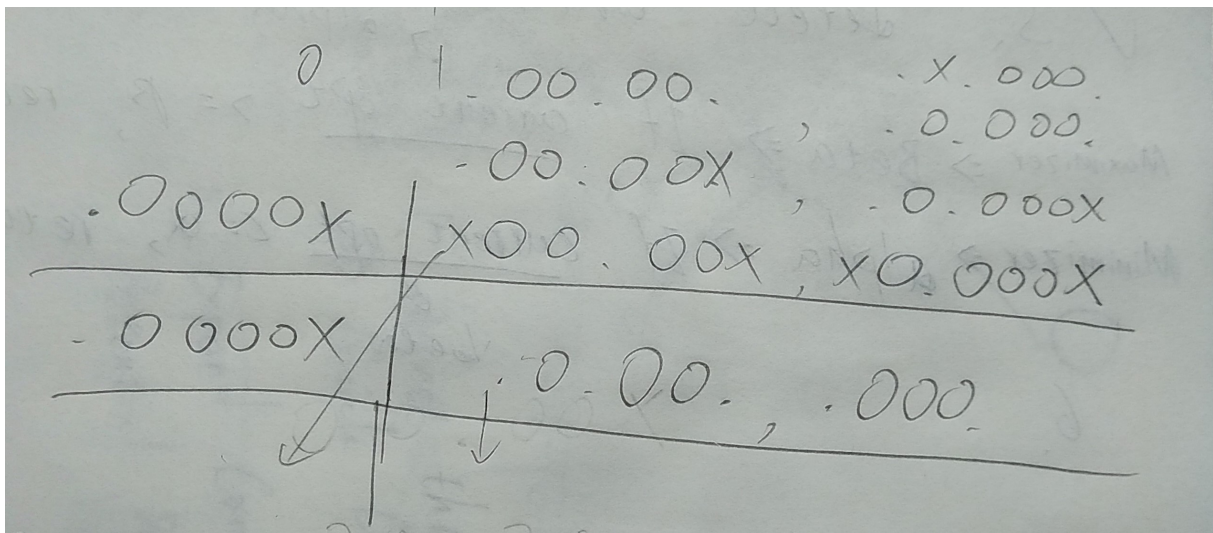 0 | 1 .00.00. , .X.000.
.0.000.
.00.00X , .0.000X
.0000X | X00.00X, X0.000X
.0000X | .0.00. , .000.